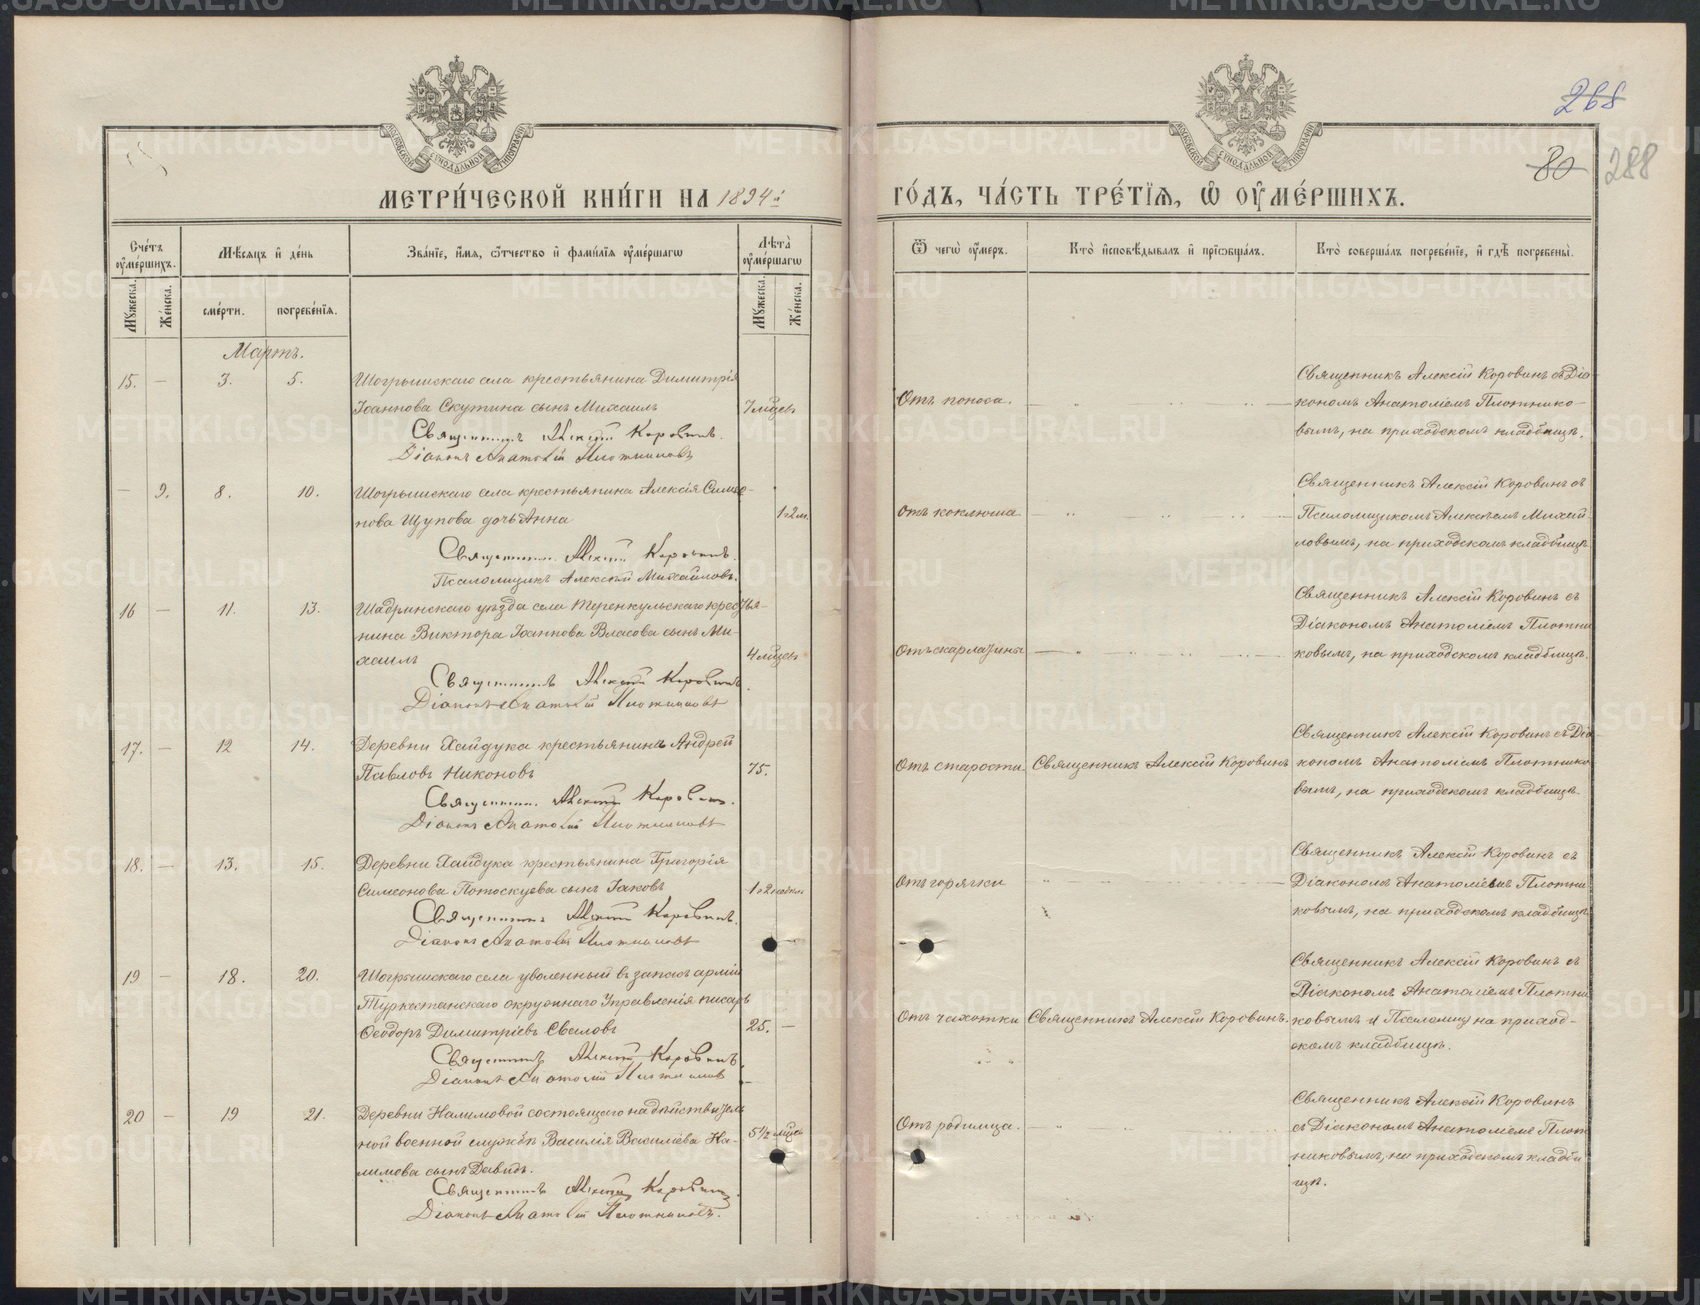 268
80 288
МЕТРИ́ЧЕСКОЙ КНИ́ГИ НА 1894й
ГО́ДЪ, ЧА́СТЬ ТРЕ́ТІѦ, Ѡ҆ ОУ҆МЕ́РШИХЪ.
Сче́тъ оу҆ме́ршихъ.
Мѣ́сѧцъ и҆ де́нь
Зва́нїе, и҆́мѧ, ѻ҆́тчество и҆ фами́лїѧ оу҆ме́ршагѡ
Лѣ́та̀ оу҆ме́ршагѡ
Ѿ чегѡ̀ оу҆́меръ.
Кто̀ и҆сповѣ́дывалъ и҆ прїѡбща́лъ.
Кто̀ соверша́лъ погребе́нїе, и҆ гдѣ̀ погребены̀.
Мꙋ́жеска.
Же́нска.
сме́рти.
погребе́нїѧ.
Мꙋ́жеска.
Же́нска.
Мартъ.
15. — 3. 5.
Шогришскаго села крестьянина Димитрія
Іоаннова Скутина сынъ Михаилъ
7 мѣсец.
Священникъ Алексій Коровинъ.
Діаконъ Анатолій Плотниковъ
Отъ поноса.
Священникъ Алексій Коровинъ съ Діа-
кономъ Анатоліемъ Плотнико-
вымъ, на приходскомъ кладбищѣ.
— 9. 8. 10.
Шогришскаго села крестьянина Алексія Симео-
нова Щупова дочь Анна
1 г 2 м.
Священникъ Алексій Коровинъ.
Псаломщикъ Алексѣй Михайловъ.
Отъ коклюша
Священникъ Алексій Коровинъ съ
Псаломщикомъ Алексѣемъ Михай-
ловымъ, на приходскомъ кладбищѣ
16 — 11. 13.
Шадринскаго уѣзда села Теренкульскаго кресть-
янина Виктора Іоаннова Власова сынъ Ми-
хаилъ
4 мѣсец
Священникъ Алексій Коровинъ
Діаконъ Анатолій Плотниковъ
Отъ скарлатины
Священникъ Алексій Коровинъ съ
Діакономъ Анатоліемъ Плотни
ковымъ, на приходскомъ кладбищѣ.
17. — 12 14.
Деревни Хайдука крестьянинъ Андрей
Павловъ Никоновъ
75.
Священник. Алексій Коровинъ.
Діаконъ Анатолій Плотниковъ
Отъ старости
Священникъ Алексій Коровинъ
Священникъ Алексій Коровинъ съ Діа
кономъ Анатоліемъ Плотнико
вымъ, на приходскомъ кладбищѣ.
18. — 13. 15.
Деревни Хайдука крестьянина Григорія
Симеонова Потоскуева сынъ Іаковъ
Священникъ Алексій Коровинъ.
Діаконъ Анатолій Плотниковъ
Отъ горячки
Священникъ Алексій Коровинъ съ
Діакономъ Анатоліемъ Плотни
ковымъ, на приходскомъ кладбищѣ
19 — 18. 20.
Шогришскаго села уволенный въ запасъ арміи
Туркестанскаго окружнаго Управленія писарь
Ѳеодоръ Димитріевъ Сваловъ
25. —
Священникъ Алексій Коровинъ
Діаконъ Анатолій Плотниковъ
Отъ чахотки
Священникъ Алексій Коровинъ.
Священникъ Алексій Коровинъ съ
Діакономъ Анатоліемъ Плотни
ковымъ и Псаломщ на приход-
скомъ кладбищѣ.
20 — 19 21.
Деревни Налимовой состоящаго на дѣйствитель
ной военной службѣ Василія Василіева На-
лимова сынъ Давидъ.
5 1/2 мѣсе
Священникъ Алексій Коровинъ.
Діаконъ Анатолій Плотниковъ.
Отъ родимца.
Священникъ Алексій Коровинъ
съ Діакономъ Анатоліемъ Плот
никовымъ, на приходскомъ кладби
щѣ.
METRIKI.GASO-URAL.RU